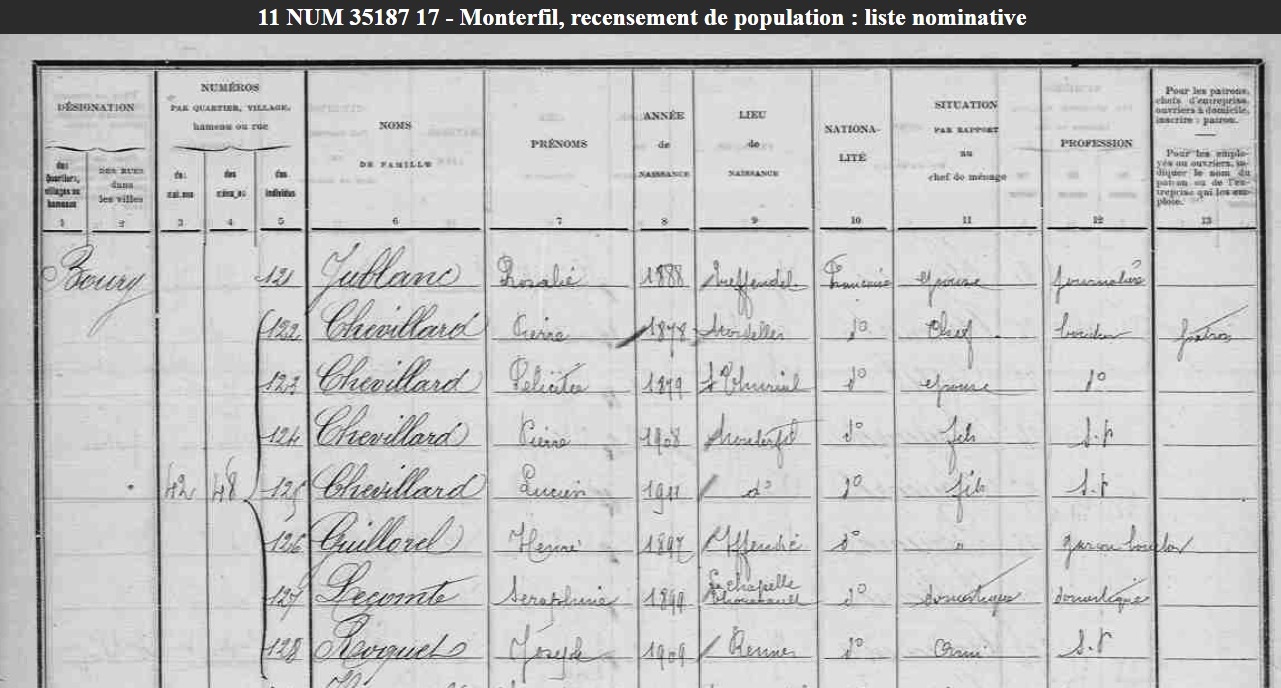 11 NUM 35187 17 - Monterfil, recensement de population : liste nominative
DÉSIGNATION
des Quartiers, villages ou hameaux
DES RUES dans les villes
NUMÉROS
PAR QUARTIER, VILLAGE, hameau ou rue
des maisons
des ménages
des individus
NOMS DE FAMILLE
PRÉNOMS
ANNÉE de NAISSANCE
LIEU de NAISSANCE
NATIONALITÉ
SITUATION PAR RAPPORT au chef de ménage
PROFESSION
Pour les patrons, chefs d'entreprise, ouvriers à domicile, inscrire : patron.
Pour les employés ou ouvriers, indiquer le nom du patron ou de l'entreprise qui les emploie.
1 2 3 4 5 6 7 8 9 10 11 12 13
Bourg 121 Jublanc Rosalie 1888 Treffendel Française épouse journalière
122 Chevillard Pierre 1878 Mordelles do Chef boucher patron
123 Chevillard Félicitée 1879 St Thurial do épouse do
124 Chevillard Pierre 1908 Monterfil do fils S.P
42 48 125 Chevillard Lucien 1911 do do fils S.P
126 Guillorel Henri 1897 Iffendic do " garçon boucher
127 Lecomte Seraphine 1899 La Chapelle Thouarault do domestique domestique
128 Roquet Joseph 1909 Rennes do Ami S.P